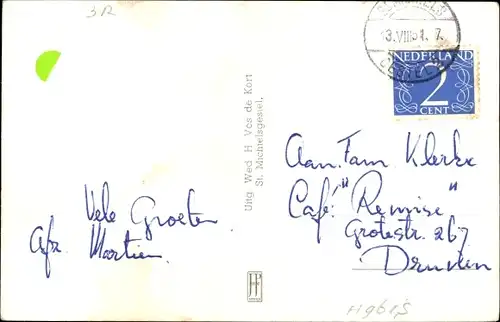 3R
13.VIII51. 7.
NEDERLAND
2
CENT
Uitg Wed H Vos de Kort
St. Michielsgestel.
Vele Groeten
Afz. Martien
Aan. Fam Klerkx
Café "Remise"
Grotestr. 267
Drunen